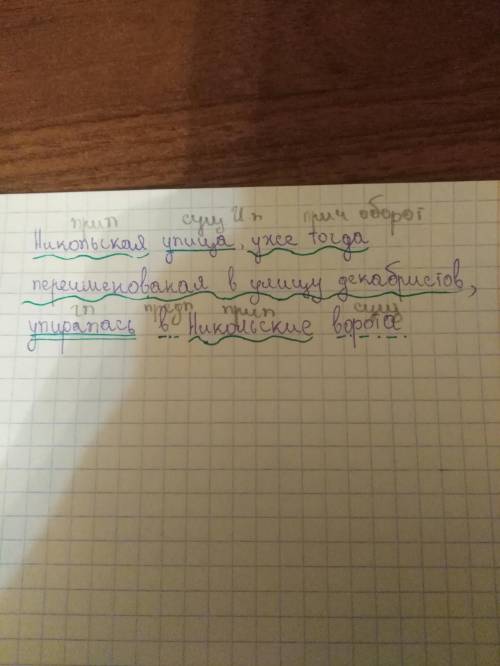 прил сущ И п прич оборот
Никольская улица, уже тогда
переименованая в улицу декабристов,
гл предл прил сущ
упиралась в Никольские ворота